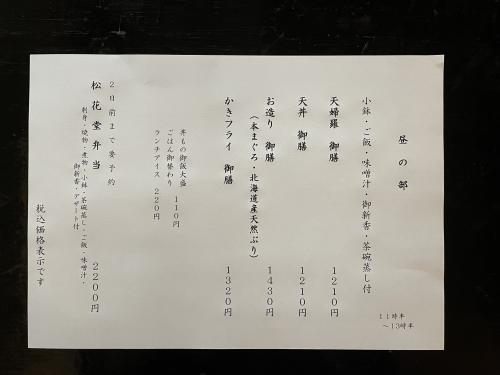 昼の部
11時半
～13時半
小鉢・ご飯・味噌汁・御新香・茶碗蒸し付
天婦羅 御膳 1210円
天丼 御膳 1210円
お造り 御膳 1430円
(本まぐろ・北海道産天然ぶり)
かきフライ 御膳 1320円
丼もの御飯大盛
ごはん御替わり 110円
ランチアイス 220円
2日前まで要予約
松花堂弁当 2200円
刺身・焼物・煮物・小鉢・茶碗蒸し・ご飯・味噌汁・
御新香・デザート付
税込価格表示です